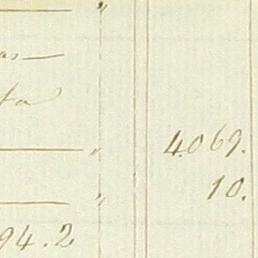 "
as —
ta
" 4.069.
" 10.
94.2